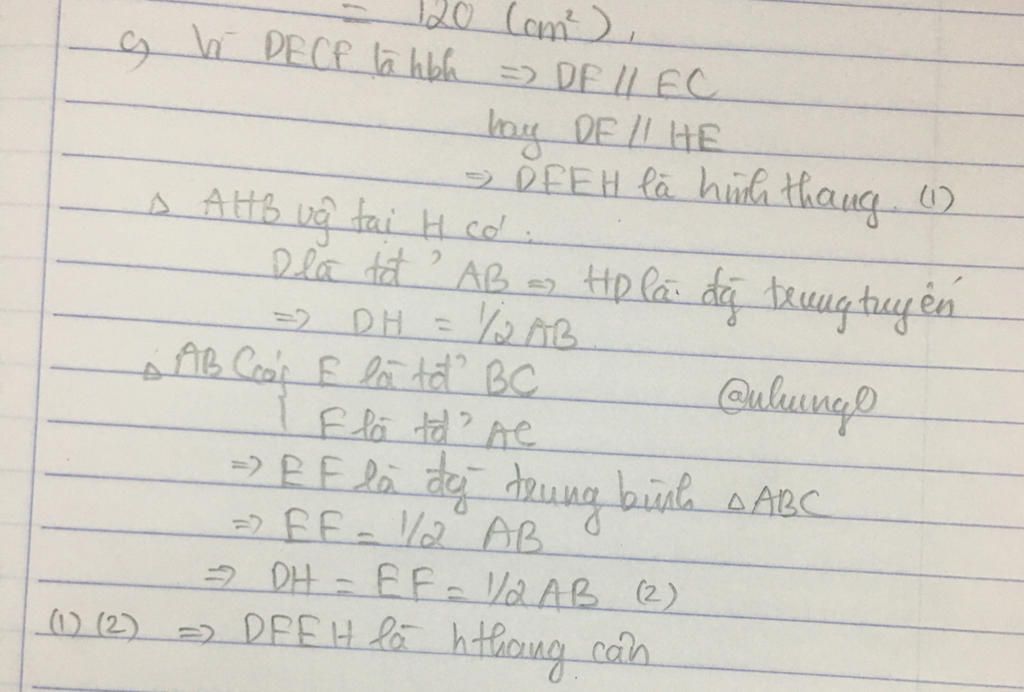 = 120 (cm²).
c) Vì DECF là hbh => DF // EC
hay DF // HE
=> DFEH là hình thang. (1)
Δ AHB vg tại H có:
D là tđ' AB => HD là đg trung tuyến
=> DH = 1/2 AB
Δ ABC có { E là tđ' BC
F là tđ' AC
@nhung0
=> EF là đg trung bình Δ ABC
=> EF = 1/2 AB
=> DH = EF = 1/2 AB (2)
(1) (2) => DFEH là hthang cân